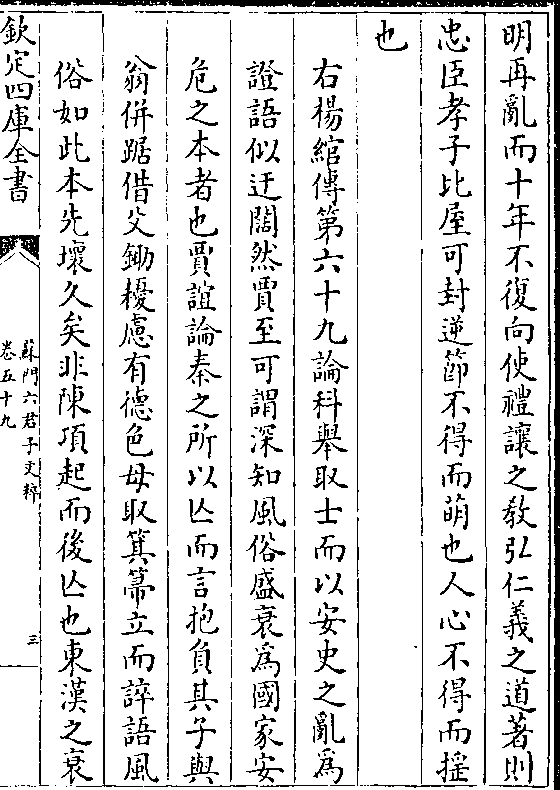 明再亂而十年不復向使禮讓之教弘仁義之道著則
忠臣孝子比屋可封逆節不得而萌也人心不得而揺
也
右楊綰傳第六十九論科舉取士而以安史之亂為
證語似迂闊然賈至可謂深知風俗盛衰為國家安
危之本者也賈誼論秦之所以亾而言抱負其子與
翁併踞借父鋤耰慮有德色母取箕箒立而誶語風
俗如此本先壞久矣非陳項起而後亾也東漢之衰
欽定四庫全書
蘇門六君子文粹
卷五十九
三